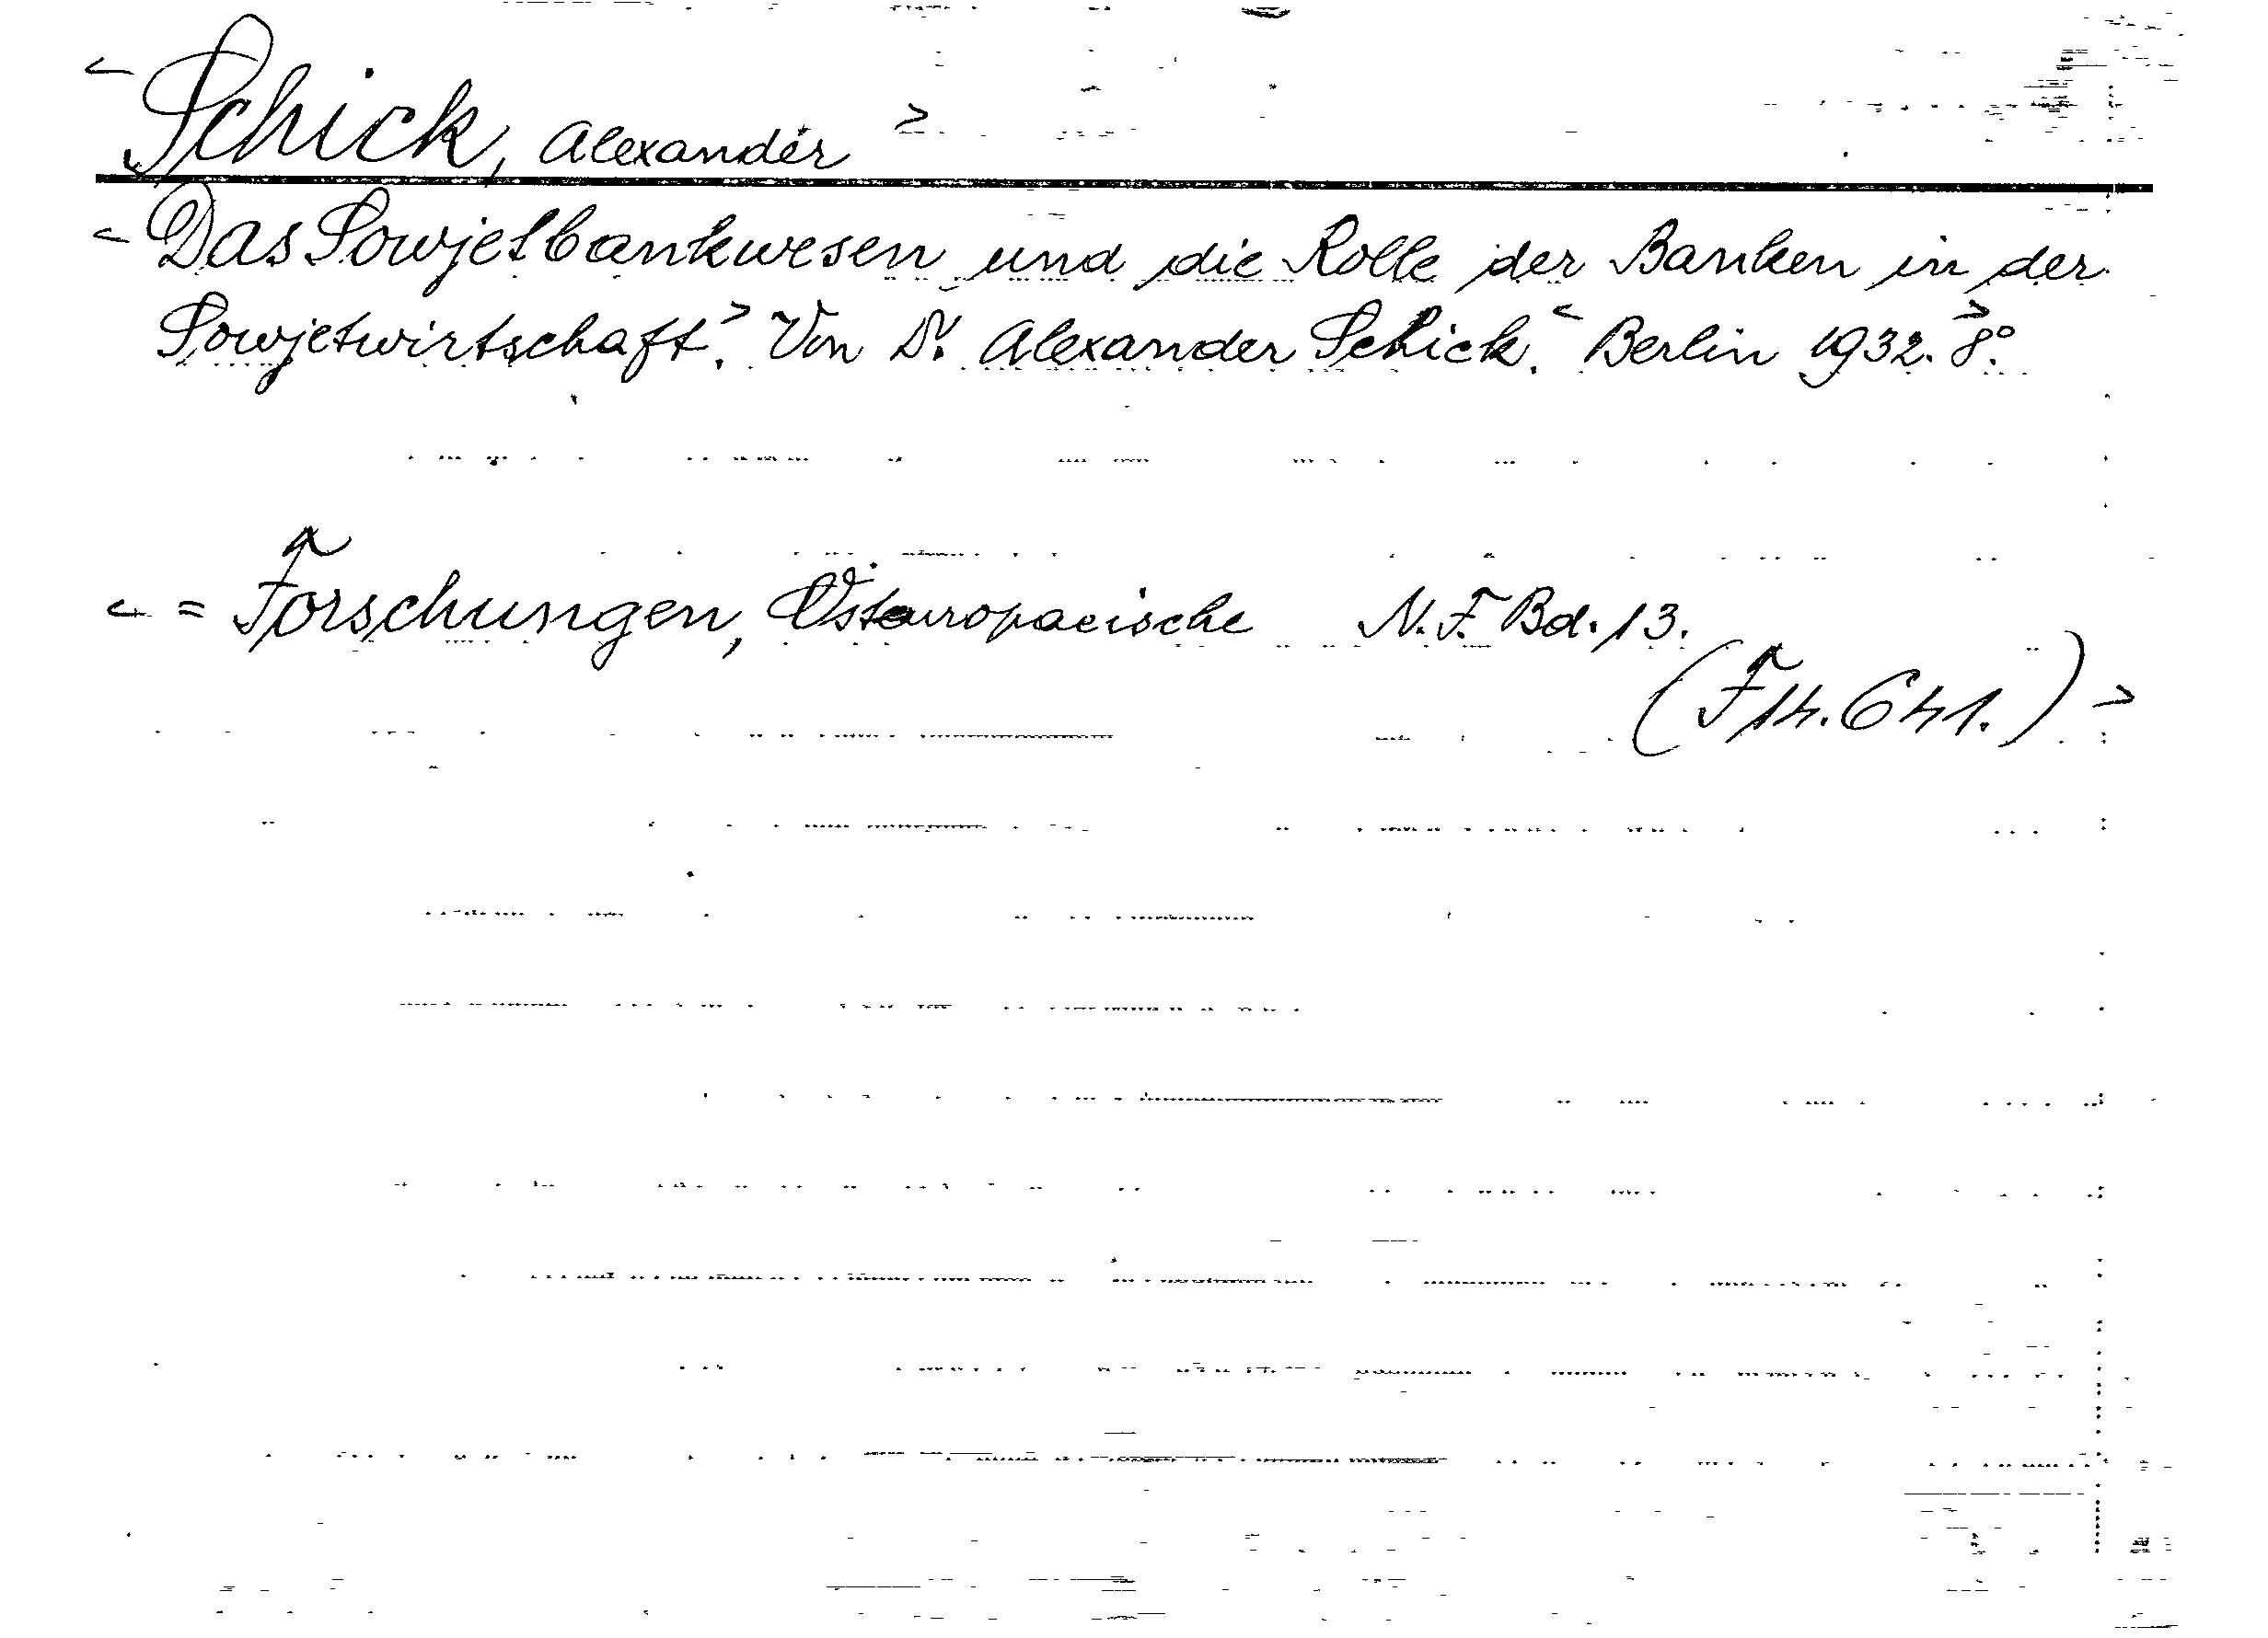 < Schick, Alexander >
< Das Sowjetbankwesen und die Rolle der Banken in der
Sowjetwirtschaft.> Von Dr. Alexander Schick. < Berlin 1932. 8°. >
< = Forschungen, Osteuropaeische N.F. Bd. 13.
(F14.641.) >